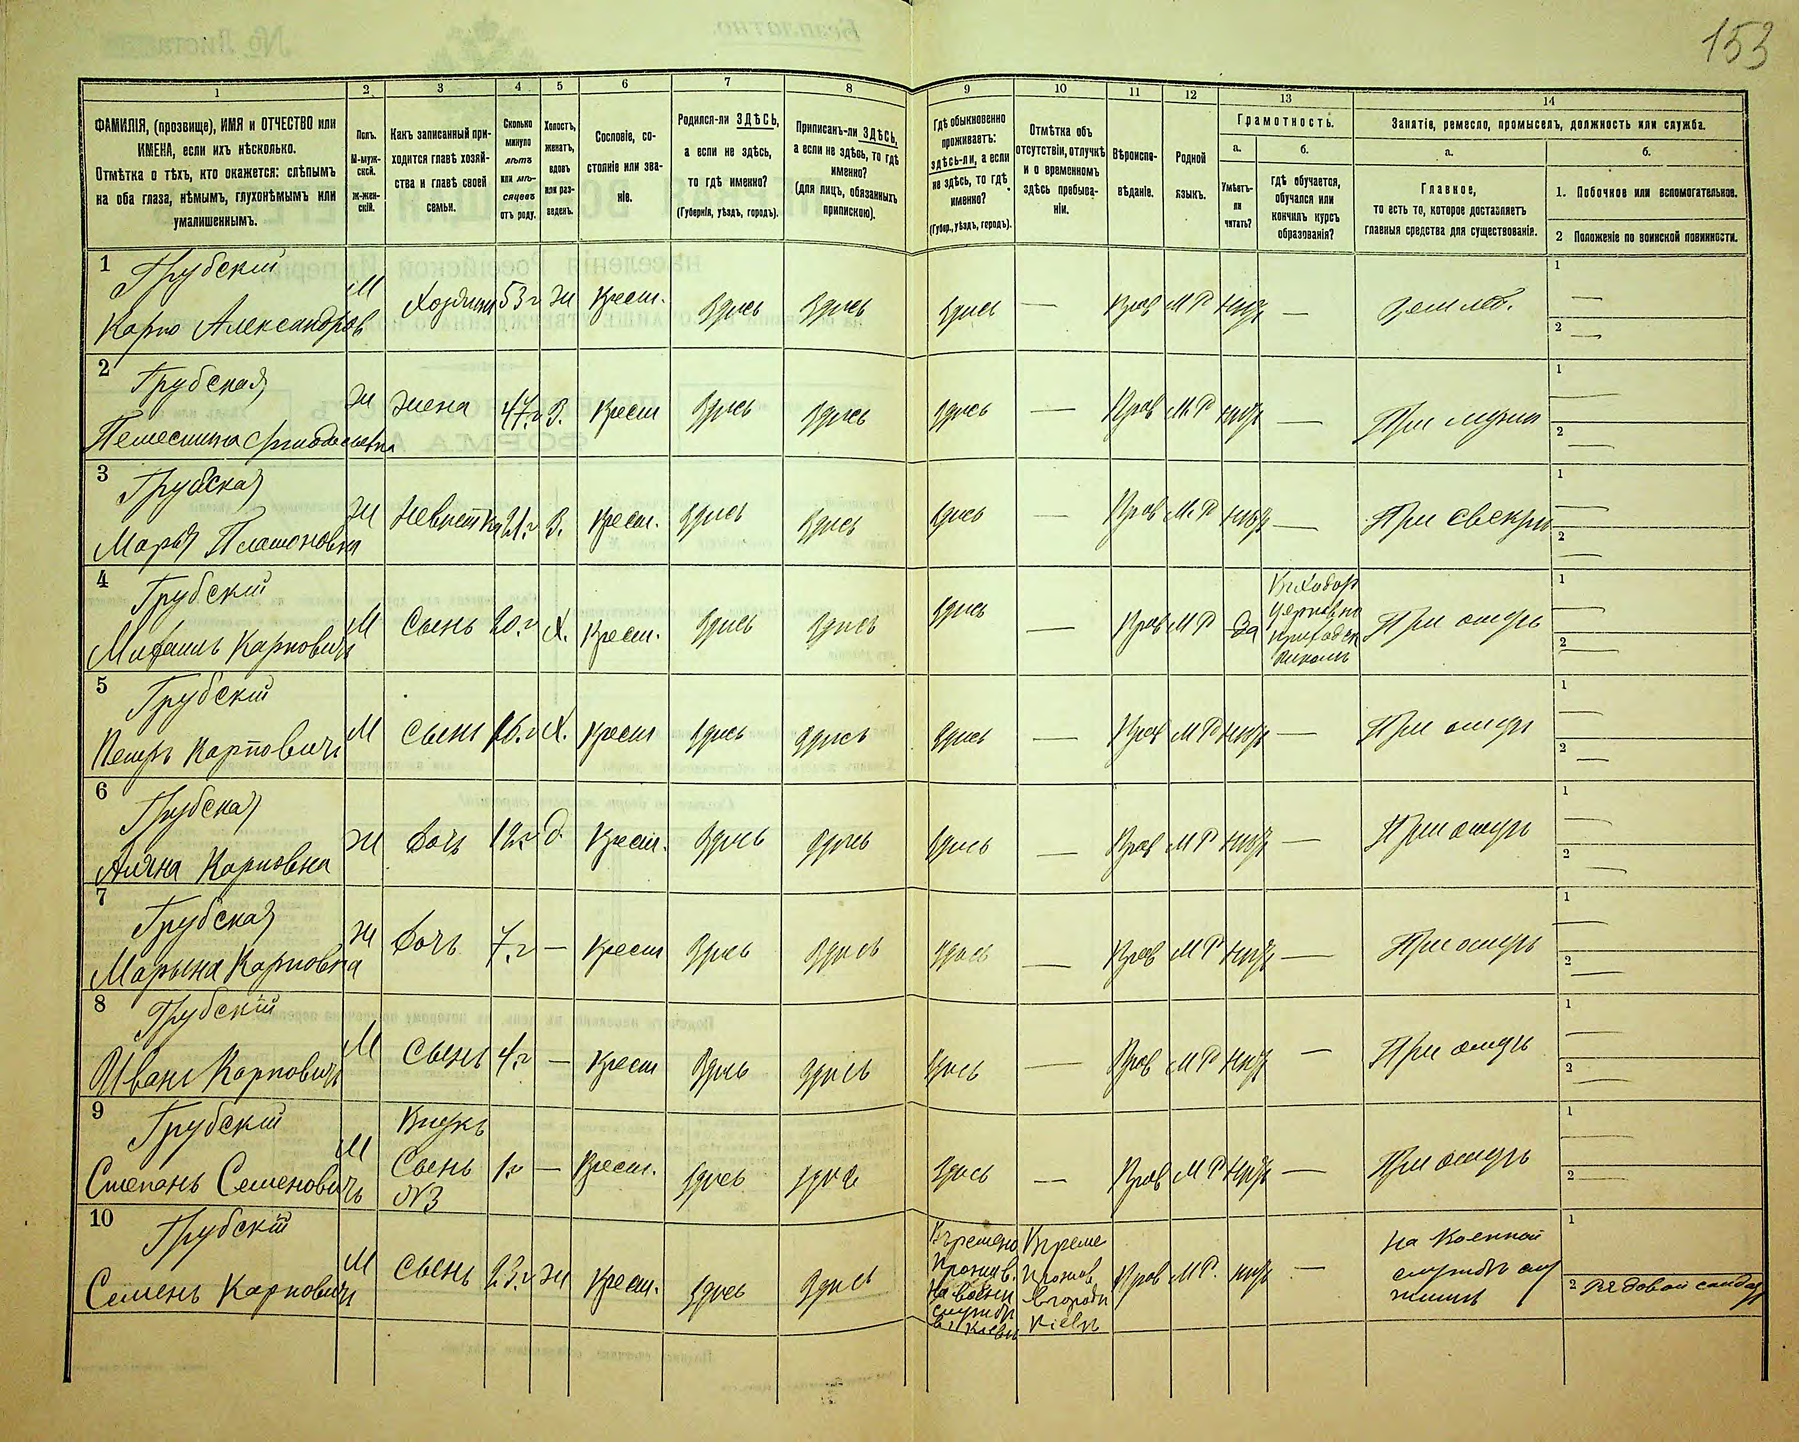 153
1 2 3 4 5 6 7 8 9 10 11 12 13 14
ФАМИЛІЯ, (прозвище), ИМЯ и ОТЧЕСТВО или
ИМЕНА, если ихъ нѣсколько.
Отмѣтка о тѣхъ, кто окажется: слѣпымъ
на оба глаза, нѣмымъ, глухонѣмымъ или
умалишеннымъ.
Полъ.
М-муж-
ской.
Ж-жен-
скій.
Какъ записанный при-
ходится главѣ хозяй-
ства и главѣ своей
семьи.
Сколько
минуло
лѣтъ
или мѣ-
сяцевъ
отъ роду.
Холостъ,
женатъ,
вдовъ
или раз-
веденъ.
Сословіе, со-
стояніе или зва-
ніе.
Родился-ли ЗДѢСЬ,
а если не здѣсь,
то гдѣ именно?
(Губернія, уѣздъ, городъ).
Приписанъ-ли ЗДѢСЬ,
а если не здѣсь, то гдѣ
именно?
(для лицъ, обязанныхъ
припискою).
Гдѣ обыкновенно
проживаетъ:
здѣсь-ли, а если
не здѣсь, то гдѣ
именно?
(Губер., уѣздъ, городъ).
Отмѣтка объ
отсутствіи, отлучкѣ
и о временномъ
здѣсь пребыва-
ніи.
Вѣроиспо-
вѣданіе.
Родной
языкъ.
Грамотность.
а.
Умѣетъ-
ли
читать?
б.
гдѣ обучается,
обучался или
кончилъ курсъ
образованія?
Занятіе, ремесло, промыселъ, должность или служба.
а.
Главное,
то есть то, которое доставляетъ
главныя средства для существованія.
б.
1. Побочное или вспомогательное.
2 Положеніе по воинской повинности.
1 Грубскій
Карпо Александров
М Хозяинъ 53 г Ж Крест. Здѣсь Здѣсь Здѣсь — Прав М Р нѣтъ — — —
2 Грубская
Ж Жена 47 г З. Крест Здѣсь Здѣсь Здѣсь — Прав М Р нѣтъ — При мужѣ — —
3 Грубская
Марья Платоновна
Ж Невистка 21 г З. Крест. Здѣсь Здѣсь Здѣсь — Прав М Р нѣтъ — При свекрѣ — —
4 Грубскій
Михаилъ Карповичъ
М Сынъ 20 г Х. Крест. Здѣсь Здѣсь Здѣсь — Прав М Р да
школѣ
При отцѣ — —
5 Грубскій
Петръ Карповичъ
М Сынъ 16 г Х. Крест Здѣсь Здѣсь Здѣсь — Прав М Р нѣтъ — При отцѣ — —
6 Грубская
Анна Карповна
Ж Дочь 12 г д. Крест. Здѣсь Здѣсь Здѣсь — Прав М Р нѣтъ — При отцѣ — —
7 Грубская
Марьина Карповна
Ж Дочь 7 г — Крест Здѣсь Здѣсь Здѣсь — Прав М Р нѣтъ — При отцѣ — —
8 Грубскій
Иванъ Карповичъ
М Сынъ 4 г — Крест Здѣсь Здѣсь Здѣсь — Прав М Р нѣтъ — При отцѣ — —
9 Грубскій
Степанъ Семеновичъ
М Внукъ
Сынъ
№3
1 г — Крест. Здѣсь Здѣсь Здѣсь — Прав М Р нѣтъ — При отцѣ — —
10 Грубскій
Семенъ Карповичъ
М Сынъ 23 г Ж Крест. Здѣсь Здѣсь
службѣ
в г Кіевѣ
Кіевѣ
Прав М Р. нѣтъ —
на военной
службѣ
2 Рядовой солдат